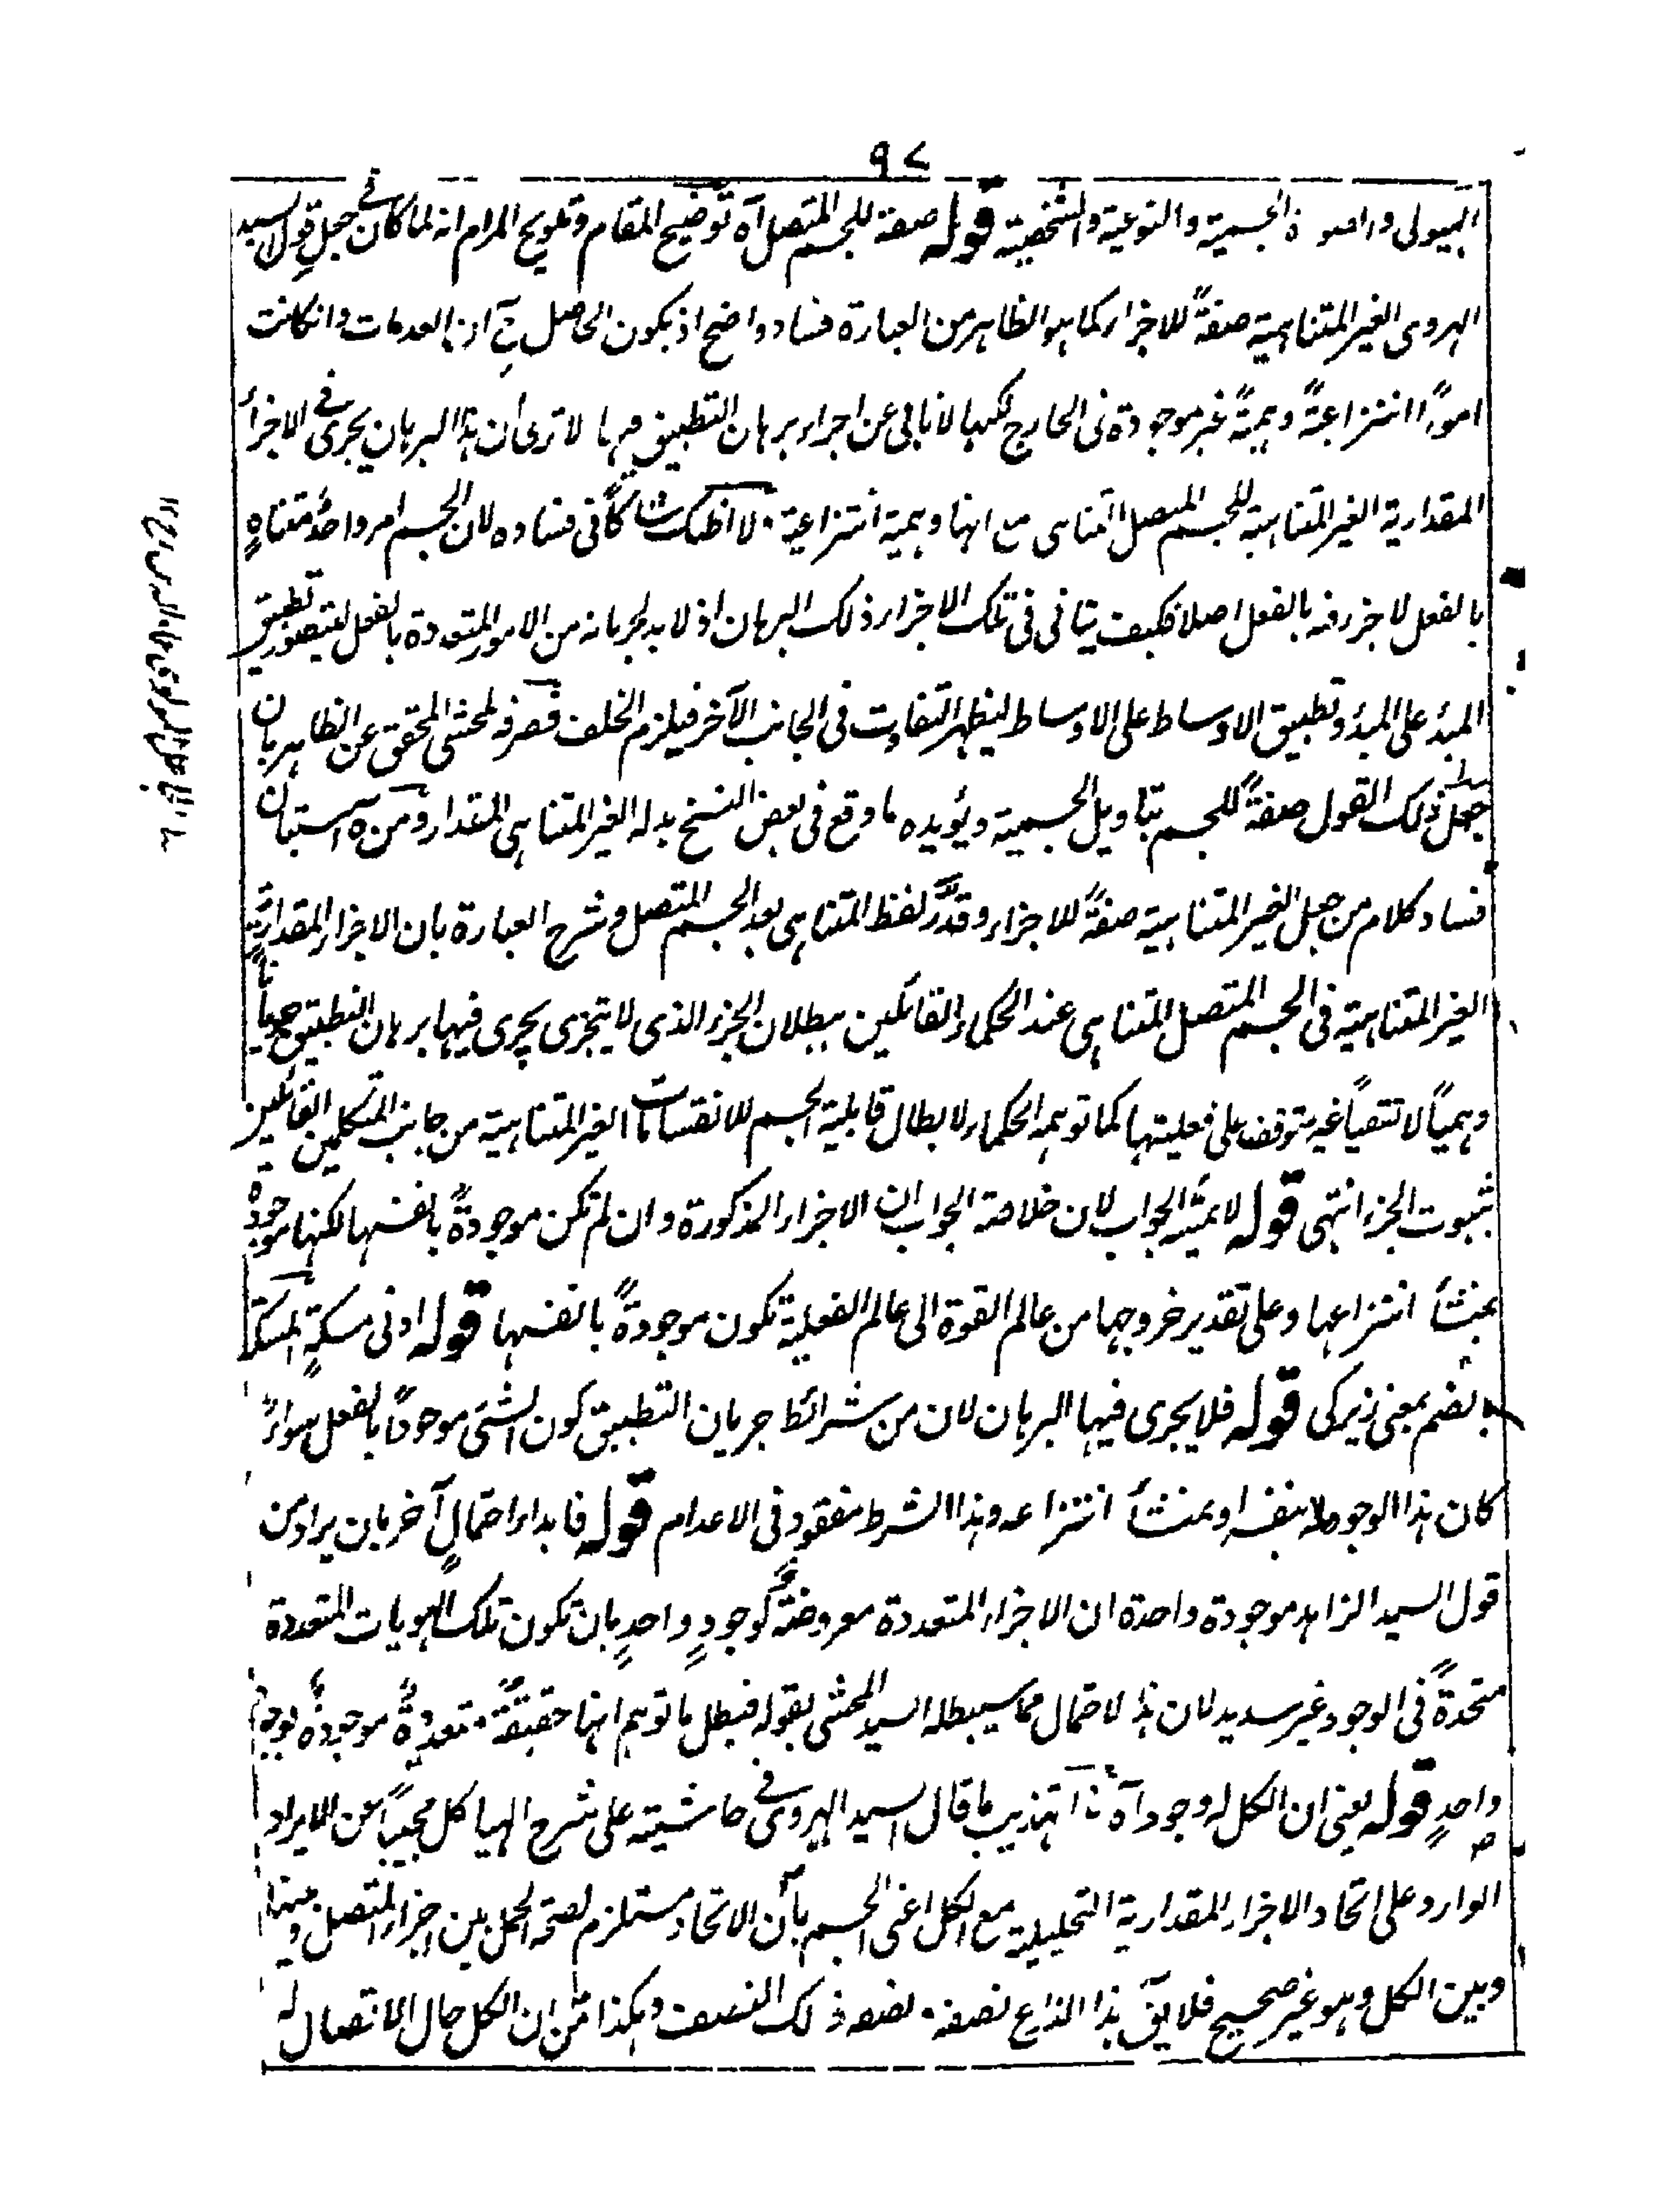 ٩٧
الهيولى والصورة الجسمية والنوعية والشخصية قوله صفة للجسم المتصل آه توضيح المقام وتلويح المرام انه لما كان في جعل قول السيد
الهروى الغير المتناهية صفةً للاجزاء كما هو الظاهر من العبارة فساد واضح اذ يكون الحاصل ح ان العدمات وان كانت
اموراً انتزاعيةً وهميةً غير موجودة فى الخارج لكنها لا تابى عن اجراء برهان التطبيق فيها الا ترى أن هذا البرهان يجرى في الاجزأ
المقدارية الغير المتناهية للجسم المتصل المتناهى مع انها وهمية انتزاعية لا اظنك شاكاً فى فساده لان الجسم امر واحدٌ متناهٍ
بالفعل لا جزء فيه بالفعل اصلا فكيف يتاتى فى تلك الاجزاء ذلك البرهان اذ لا بد لجريانه من الامور المتعددة بالفعل ليتصور تطبيق
المبدء على المبدء وتطبيق الاوساط على الاوساط ليظهر التفاوت فى الجانب الآخر فيلزم الخلف فصرفه المحشى المحقق عن الظاهر بان
جعل ذلك القول صفةً للجسم بتاويل الجسمية ويؤيده ما وقع فى بعض النسخ بدله الغير المتناهى المقدار ومن ه استبان
فساد كلام من جعل الغير المتناهية صفةً للاجزاء وقدَّر لفظ المتناهى بعد الجسم المتصل وشرح العبارة بان الاجزاء المقدارية
الغير المتناهية فى الجسم المتصل المتناهى عند الحكماء القائلين ببطلان الجزء الذى لا يتجزى يجرى فيها برهان التطبيق جرياناً
وهمياً لا تتقياً غير متوقف على فعليتها كما توهمه الحكماء لابطال قابلية الجسم للانقسامات الغير المتناهية من جانب المتكلمين القائلين
بثبوت الجزء انتهى قوله لا يمشّ الجواب لان خلاصة الجواب ان الاجزاء المذكورة وان لم تكن موجودةً بانفسها لكنها موجودة
بمنشأ انتزاعها وعلى تقدير خروجها من عالم القوة الى عالم الفعلية تكون موجودةً بانفسها قوله ادنى مسكةٍ المسكة
بالضم بمعنى زيركى قوله فلا يجرى فيها البرهان لان من شرائط جريان التطبيق كون الشئ موجوداً بالفعل سواءً
كان هذا الوجود له بنفسه او بمنشأ انتزاعه وهذا الشرط مفقود فى الاعدام قوله فابداء احتمالٍ آخر بان يراد من
قول السيد الزاهد موجودة واحدة ان الاجزاء المتعددة معروضةٌ لوجودٍ واحدٍ بان تكون تلك الهويات المتعددة
متحدةً فى الوجود غير سديد لان هذا الاحتمال مما سيبطله السيد المحشى بقوله فبطل ما توهم انها حقيقةٌ متعددةٌ موجودةٌ بوجودٍ
واحدٍ قوله يعنى ان الكل له وجود آه هذا تهذيب ما قال السيد الهروى في حاشيته على شرح الهياكل مجيباً عن الايراد
الوارد على اتحاد الاجزاء المقدارية التحليلية مع الكل اعنى الجسم بأن الاتحاد مستلزم لصحة الحمل بين اجزاء المتصل وبينها
وبين الكل وهو غير صحيح فلا يق هذا الذراع نصفه نصفه ذلك النصف وهكذا من ان الكل حال الاتصال له